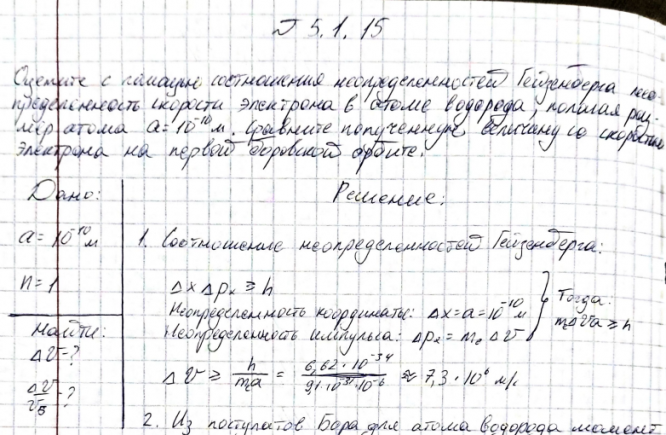 № 5.1.15
Оцените с помощью соотношения неопределенностей Гейзенберга нео-
пределенность скорости электрона в атоме водорода, полагая раз-
мер атома a=10⁻¹⁰ м. Сравните полученную величину со скоростью
электрона на первой боровской орбите.
Дано:
Решение:
a = 10⁻¹⁰ м
1. Соотношение неопределенностей Гейзенберга:
n = 1
Δx Δpₓ ≥ h
Неопределенность координаты: Δx = a = 10⁻¹⁰ м
Неопределенность импульса: Δpₓ = mₑ Δv
Тогда:
mₑΔva ≥ h
Найти:
Δv - ?
Δv/v_Б - ?
Δv ≥ h/(mₑa) = (6,62·10⁻³⁴)/(9,1·10⁻³¹·10⁻⁶) ≈ 7,3·10⁶ м/с
2. Из постулатов Бора для атома водорода момент